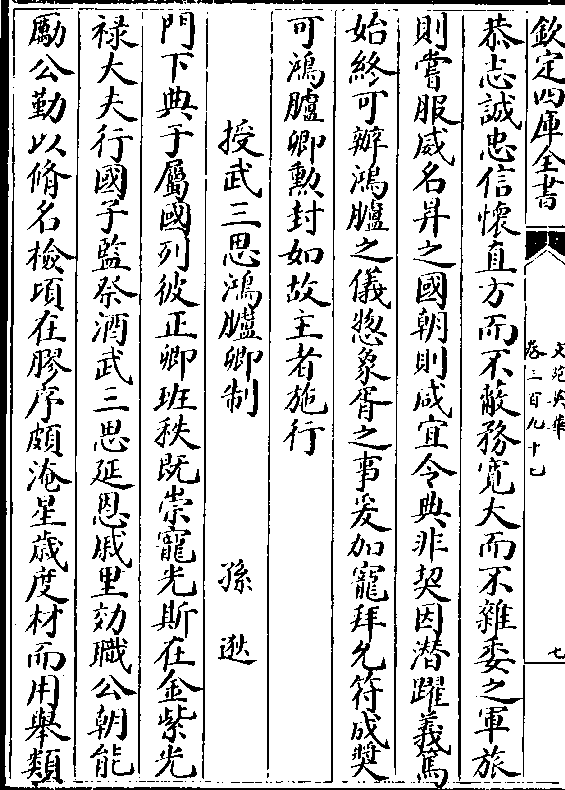 欽定四庫全書
文苑英華
卷三百九十七
七
恭志誠忠信懷直方而不蔽務寬大而不雜委之軍旅
則嘗服威名昇之國朝則咸宜令典非契因潛躍義篤
始終可辦鴻臚之儀惣象胥之事爰加寵拜允符成奬
可鴻臚卿勲封如故主者施行
授武三思鴻臚卿制 孫逖
門下典于屬國列彼正卿班秩既崇寵光斯在金紫光
禄大夫行國子監祭酒武三思延恩戚里効職公朝能
勵公勤以脩名檢項在膠序頗淹星歲度材而用舉類